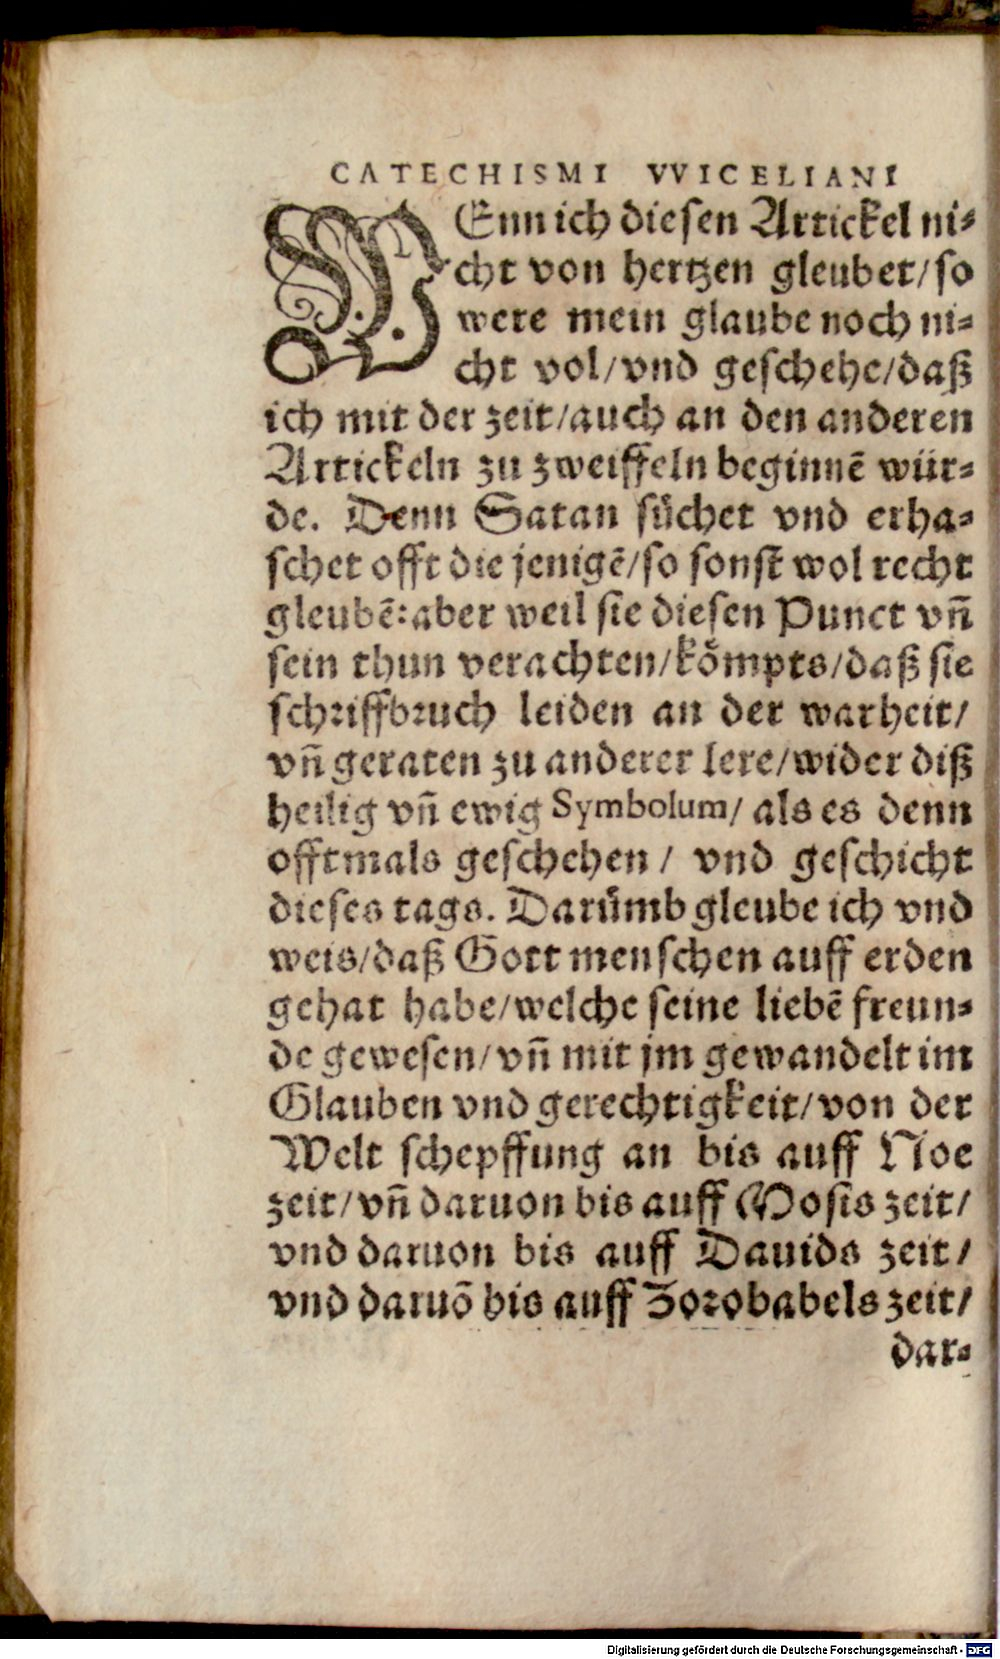 CATECHISMI VVICELIANI
WEnn ich diesen Artickel ni⸗
cht von hertzen gleubet/so
were mein glaube noch ni⸗
cht vol/vnd geschehe/daß
ich mit der zeit/auch an den anderen
Artickeln zu zweiffeln beginnē wür⸗
de. Denn Satan sůchet vnd erha⸗
schet offt die jenigē/so sonst wol recht
gleubē:aber weil sie diesen Punct vñ
sein thun verachten/kömpts/daß sie
schriffbruch leiden an der warheit/
vñ geraten zu anderer lere/wider diß
heilig vñ ewig Symbolum/ als es denn
offtmals geschehen/ vnd geschicht
dieses tags. Darůmb gleube ich vnd
weis/daß Gott menschen auff erden
gehat habe/welche seine liebē freun⸗
de gewesen/vñ mit jm gewandelt im
Glauben vnd gerechtigkeit/von der
Welt schepffung an bis auff Noe
zeit/vñ daruon bis auff Mosis zeit/
vnd daruon bis auff Dauids zeit/
vnd daruō bis auff Zorobabels zeit/
dar⸗
Digitalisierung gefördert durch die Deutsche Forschungsgemeinschaft - DFG